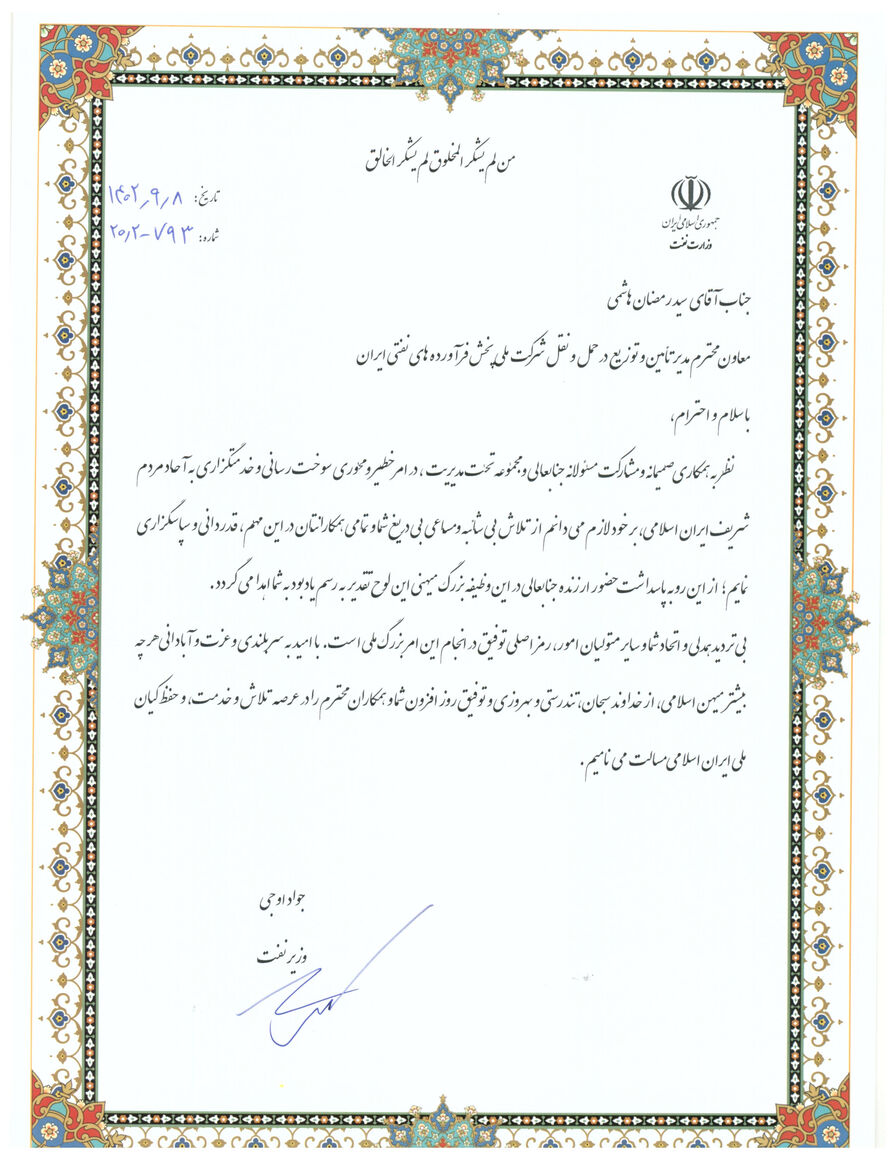 من لم یشکر المخلوق لم یشکر الخالق
تاریخ: ۱۴۰۲٫۹٫۸
شماره: ۲۰٫۲-۷۹۳
جمهوری اسلامی ایران
وزارت نفت
جناب آقای سید رمضان هاشمی
معاون محترم مدیر تأمین و توزیع در حمل و نقل شرکت ملی پخش فرآورده های نفتی ایران
با سلام و احترام،
نظر به همکاری صمیمانه و مشارکت مسئولانه جنابعالی و مجموعه تحت مدیریت، در امر خطیر و محوری سوخت رسانی و خدمتگزاری به آحاد مردم
شریف ایران اسلامی، بر خود لازم می دانم از تلاش بی شائبه و مساعی بی دریغ شما و تمامی همکارانتان در این مهم، قدردانی و سپاسگزاری
نمایم؛ از این رو به پاسداشت حضور ارزنده جنابعالی در این وظیفه بزرگ میهنی این لوح تقدیر به رسم یادبود به شما اهدا می گردد.
بی تردید همدلی و اتحاد شما و سایر متولیان امور، رمز اصلی توفیق در انجام این امر بزرگ ملی است. با امید به سربلندی و عزت و آبادانی هرچه
بیشتر میهن اسلامی، از خداوند سبحان، تندرستی و بهروزی و توفیق روز افزون شما و همکاران محترم را در عرصه تلاش و خدمت، و حفظ کیان
ملی ایران اسلامی مسالت می نامیم.
جواد اوجی
وزیر نفت